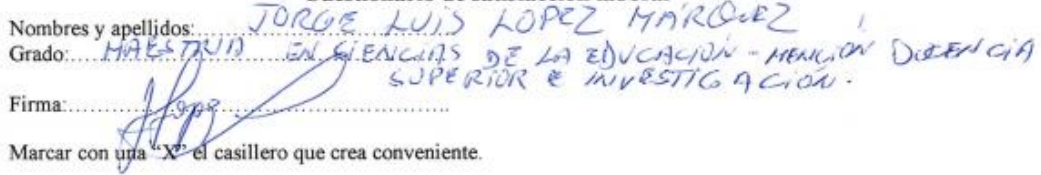 Nombres y apellidos: JORGE LUIS LOPEZ MÁRQUEZ
Grado: MAESTRIA EN CIENCIAS DE LA EDUCACIÓN - MENCIÓN DOCENCIA
SUPERIOR E INVESTIGACIÓN.
Firma:
Marcar con una "X" el casillero que crea conveniente.